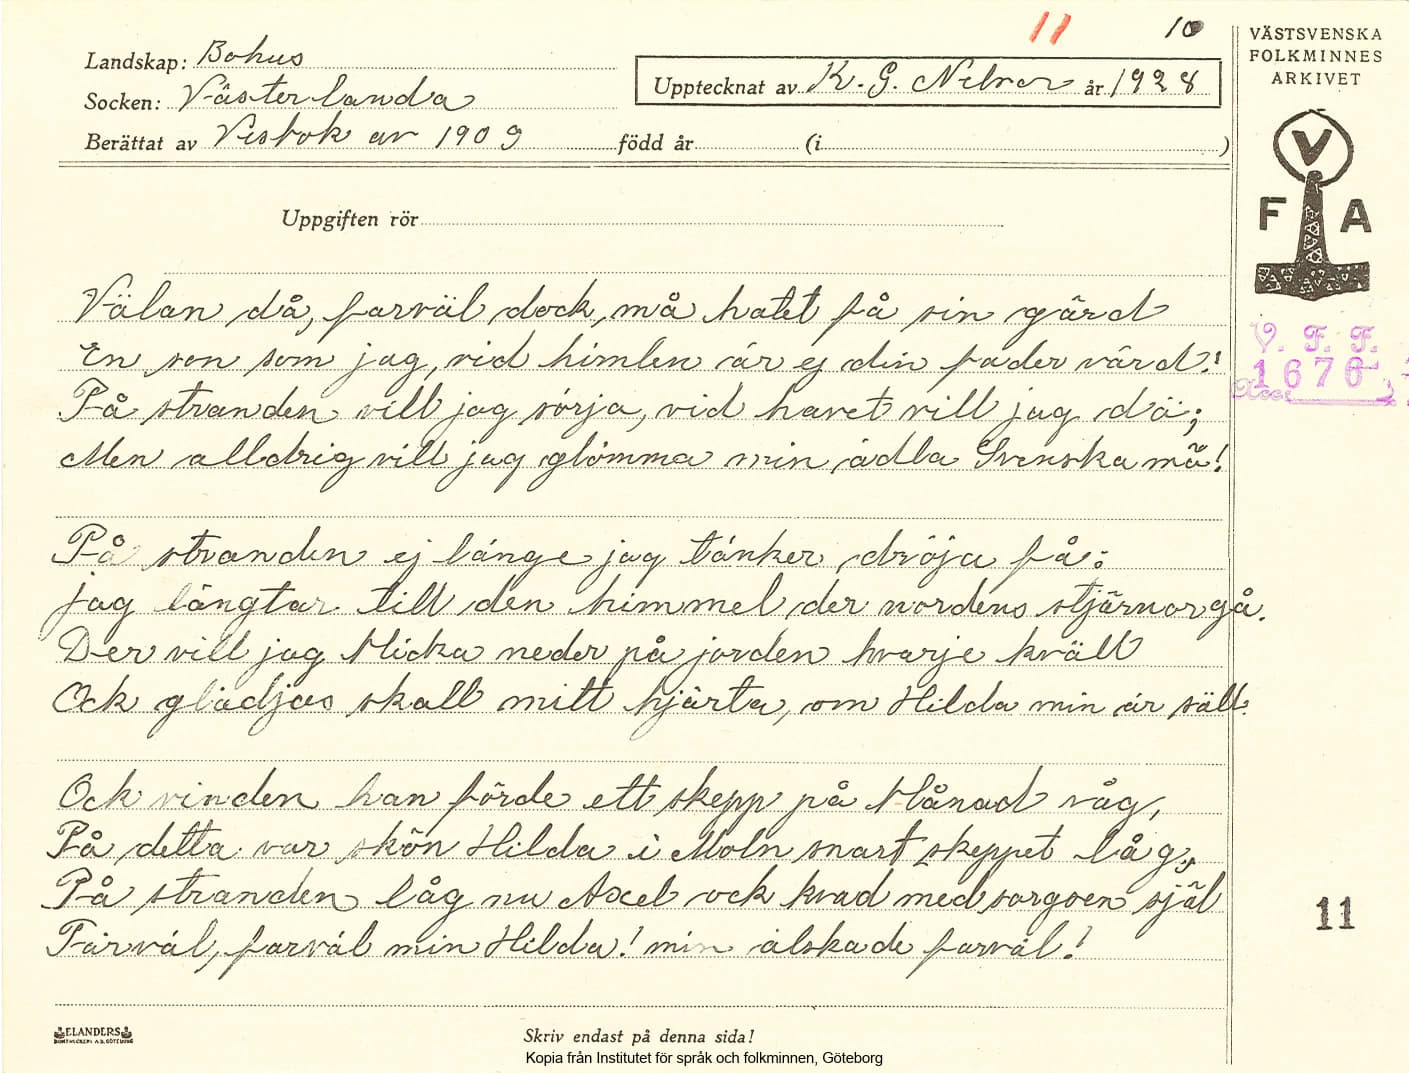 11
10
VÄSTSVENSKA
FOLKMINNES
ARKIVET
Landskap: Bohus
Socken: Västerlanda
Upptecknat av K. G. år 1928
Berättat av Visbok av 1909 född år (i )
Uppgiften rör
V
F A
V. F. F.
1676
Acc:
Välan då, farväl dock, må hatet få sin gärd
En son som jag, vid himlen är ej din fader värd!
På stranden vill jag sörja, vid havet vill jag dö;
Men alldrig vill jag glömma min ädla Svenska mö!
På stranden ej länge jag tänker dröja få:
jag längtar till den himmel der nordens stjärnor gå.
Der vill jag blicka neder på jorden hvarje kväll
Ock glädjas skall mitt hjärta, om Hilda min är säll.
Ock vinden han förde ett skepp på blånad våg,
På detta var skön Hilda i Moln snart skeppet låg,
På stranden låg nu Axel ock kvad med sorgsen själ
Farväl, farväl min Hilda! min älskade farväl!
11
ELANDERS
BOKTRYCKERI A.B. GÖTEBORG
Skriv endast på denna sida!
Kopia från Institutet för språk och folkminnen, Göteborg